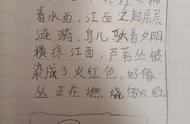 着水面，江面泛起层层
涟漪，鸟儿驮着夕阳
横掠江面，芦苇丛被
染成了火红色，好像一
丛正在燃烧的火焰